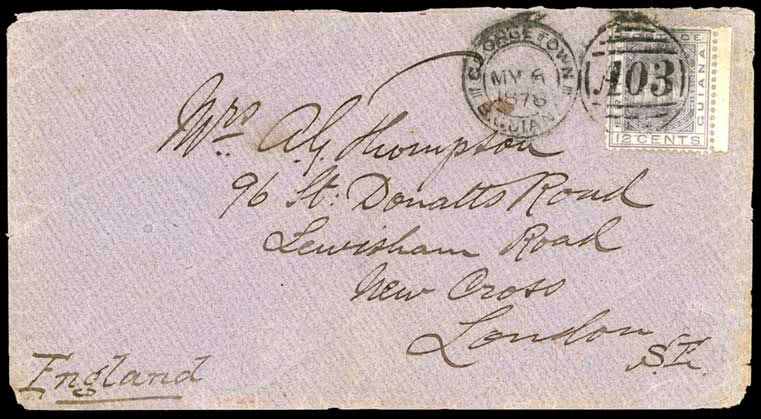 GEORGETOWN
MY 6
1878
B. GUIANA
A03
GUIANA
12 CENTS
Mrs A G Thompson
96 St: Donatts Road
Lewisham Road
New Cross
London
S.E.
England